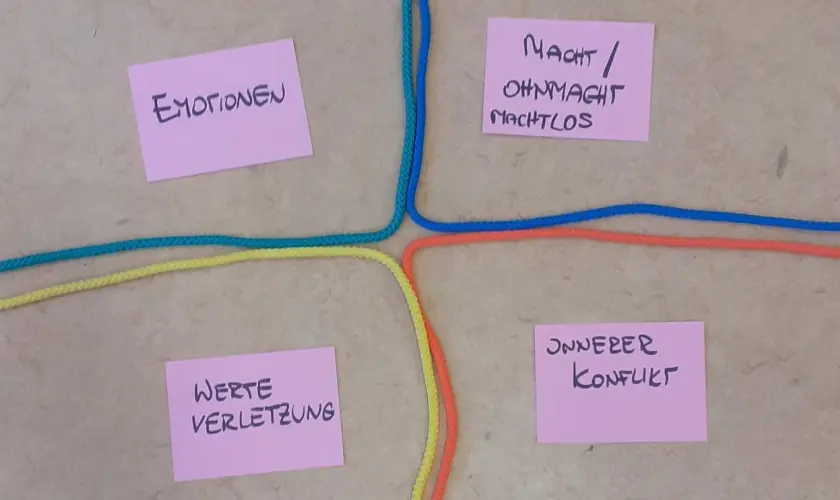 EMOTIONEN
MACHT /
OHNMACHT
MACHTLOS
WERTE
VERLETZUNG
INNERER
KONFLIKT